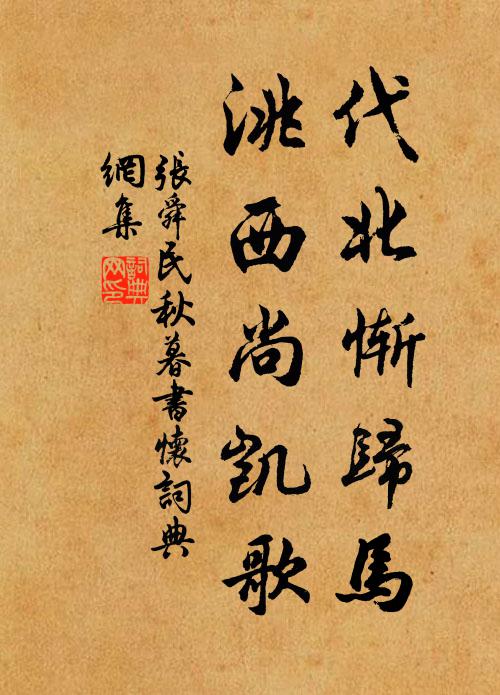 代北慚歸馬
洮西尚凱歌
張舜民秋暮書懷詞典
網集
詞典
网印